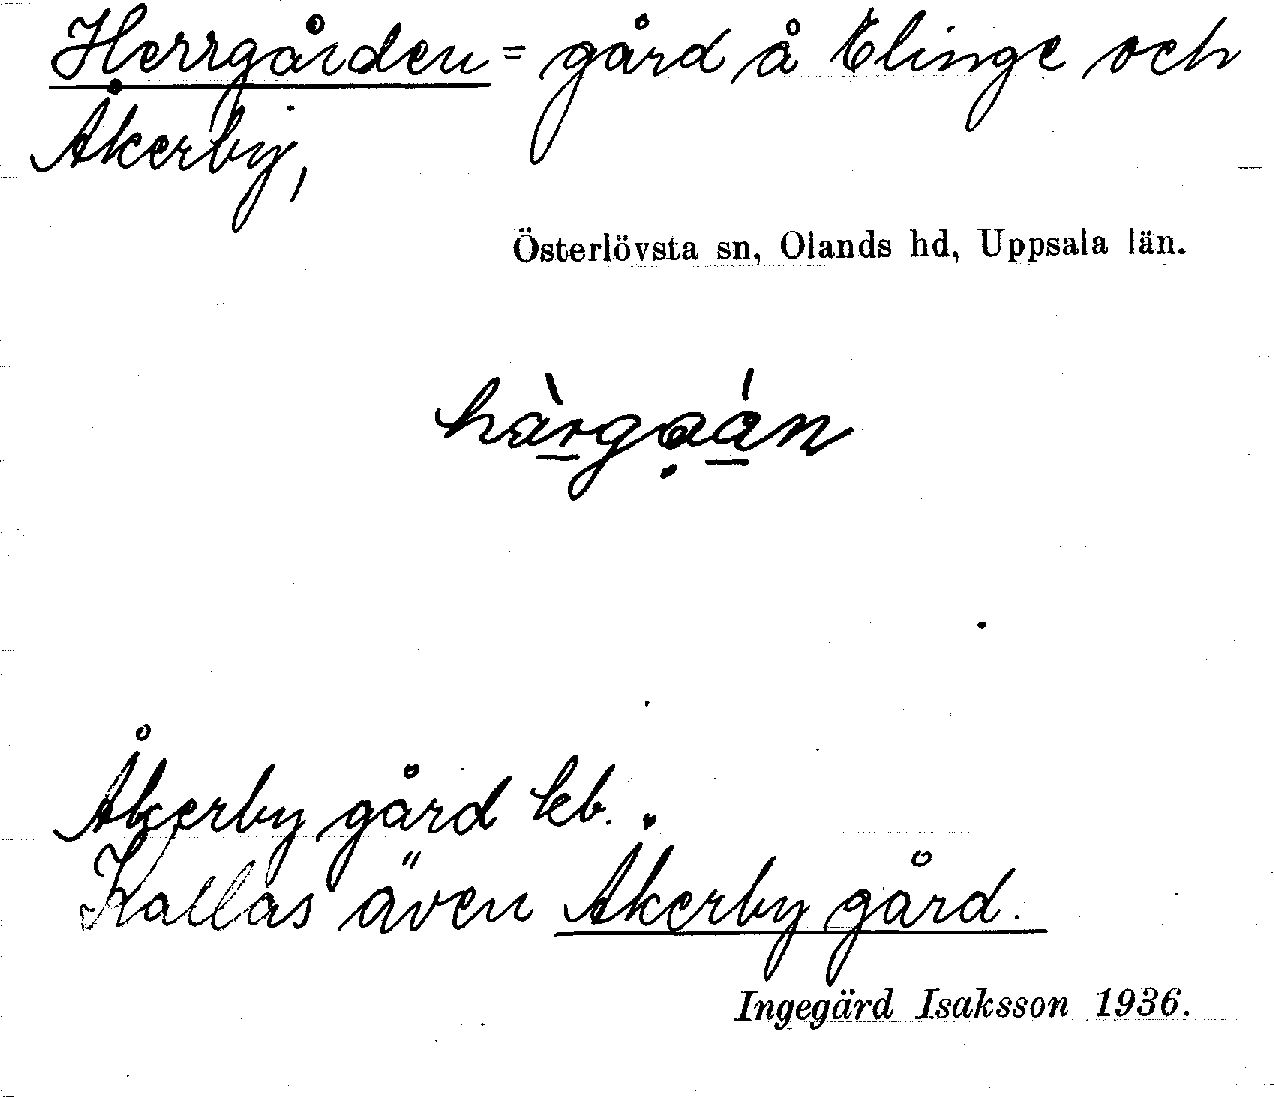 Herrgården = gård å Elinge och
Åkerby,
Österlövsta sn, Olands hd, Uppsala län.
Åkerby gård kb.
Kallas även Åkerby gård.
Ingegärd Isaksson 1936.